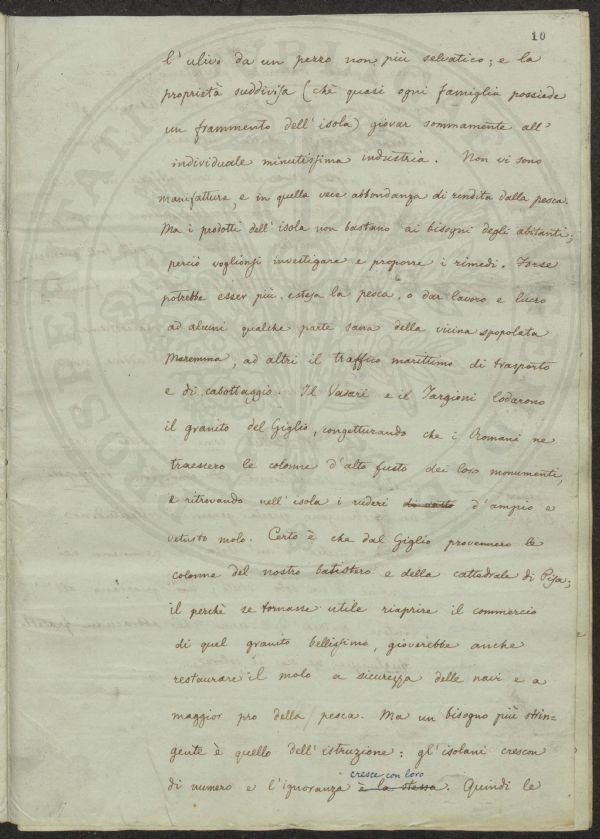 10
l'ulivo da un pezzo non più selvatico; e la
proprietà suddivisa (chè quasi ogni famiglia possiede
un frammento dell'isola) giovar sommamente all'
individuale minutissima industria. Non vi sono
manifatture, e in quella vece abbondanza di rendita dalla pesca.
Ma i prodotti dell'isola non bastano ai bisogni degli abitanti;
perciò voglionsi investigare e proporre i rimedi. Forse
potrebbe esser più estesa la pesca, o dar lavoro e lucro
ad alcuni qualche parte sana della vicina spopolata
Maremma, ad altri il traffico marittimo di trasporto
e di cabottaggio. Il Vasari e il Targioni lodarono
il granito del Giglio, congetturando che i Romani ne
traessero le colonne d'alto fusto dei loro monumenti,
e ritrovando nell'isola i ruderi di vasto d'ampio e
vetusto molo. Certo è che dal Giglio provennero le
colonne del nostro batistero e della cattedrale di Pisa;
il perchè se tornasse utile riaprire il commercio
di quel granito bellissimo, gioverebbe anche
restaurare il molo a sicurezza delle navi e a
maggior pro della pesca. Ma un bisogno più strin=
gente è quello dell'istruzione: gl'isolani crescon
cresce con loro
di numero e l'ignoranza è la stessa. Quindi le